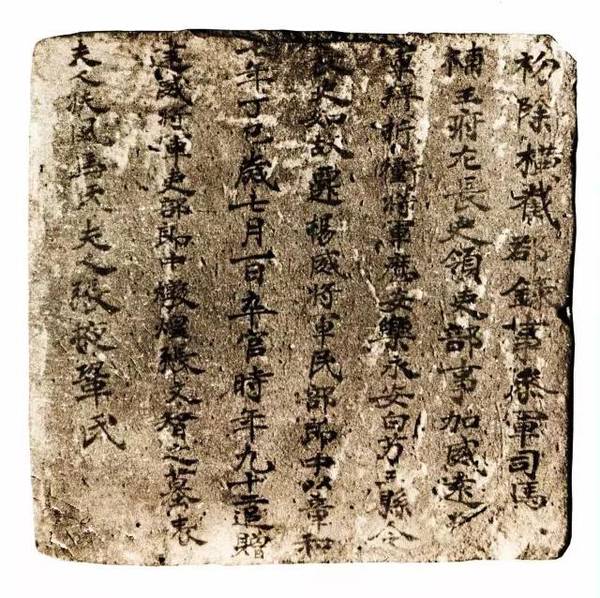 初除橫截郡錄事參軍司馬
補王府左長史領吏部事加威遠將
軍拜折衝將軍庵安樂永安白芳三縣令
長史如故遷楊威將軍民部郎中以章和
七年丁巳歲七月一日卒官時年九十二追贈
建威將軍吏部郎中燉煌張文智之墓表
夫人扶風馬氏夫人張掖鞏氏